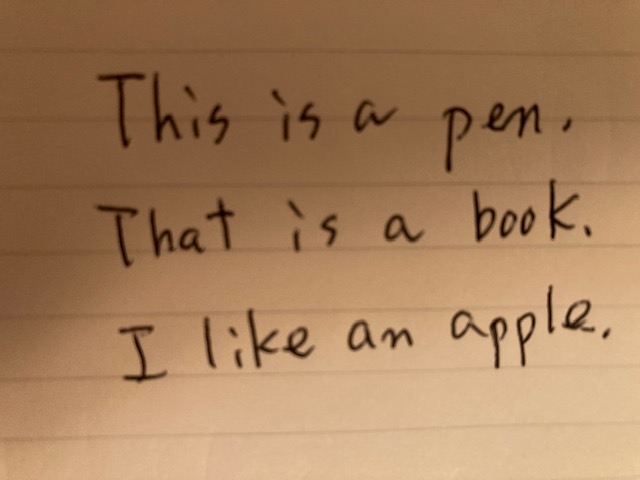 This is a pen.
That is a book.
I like an apple.